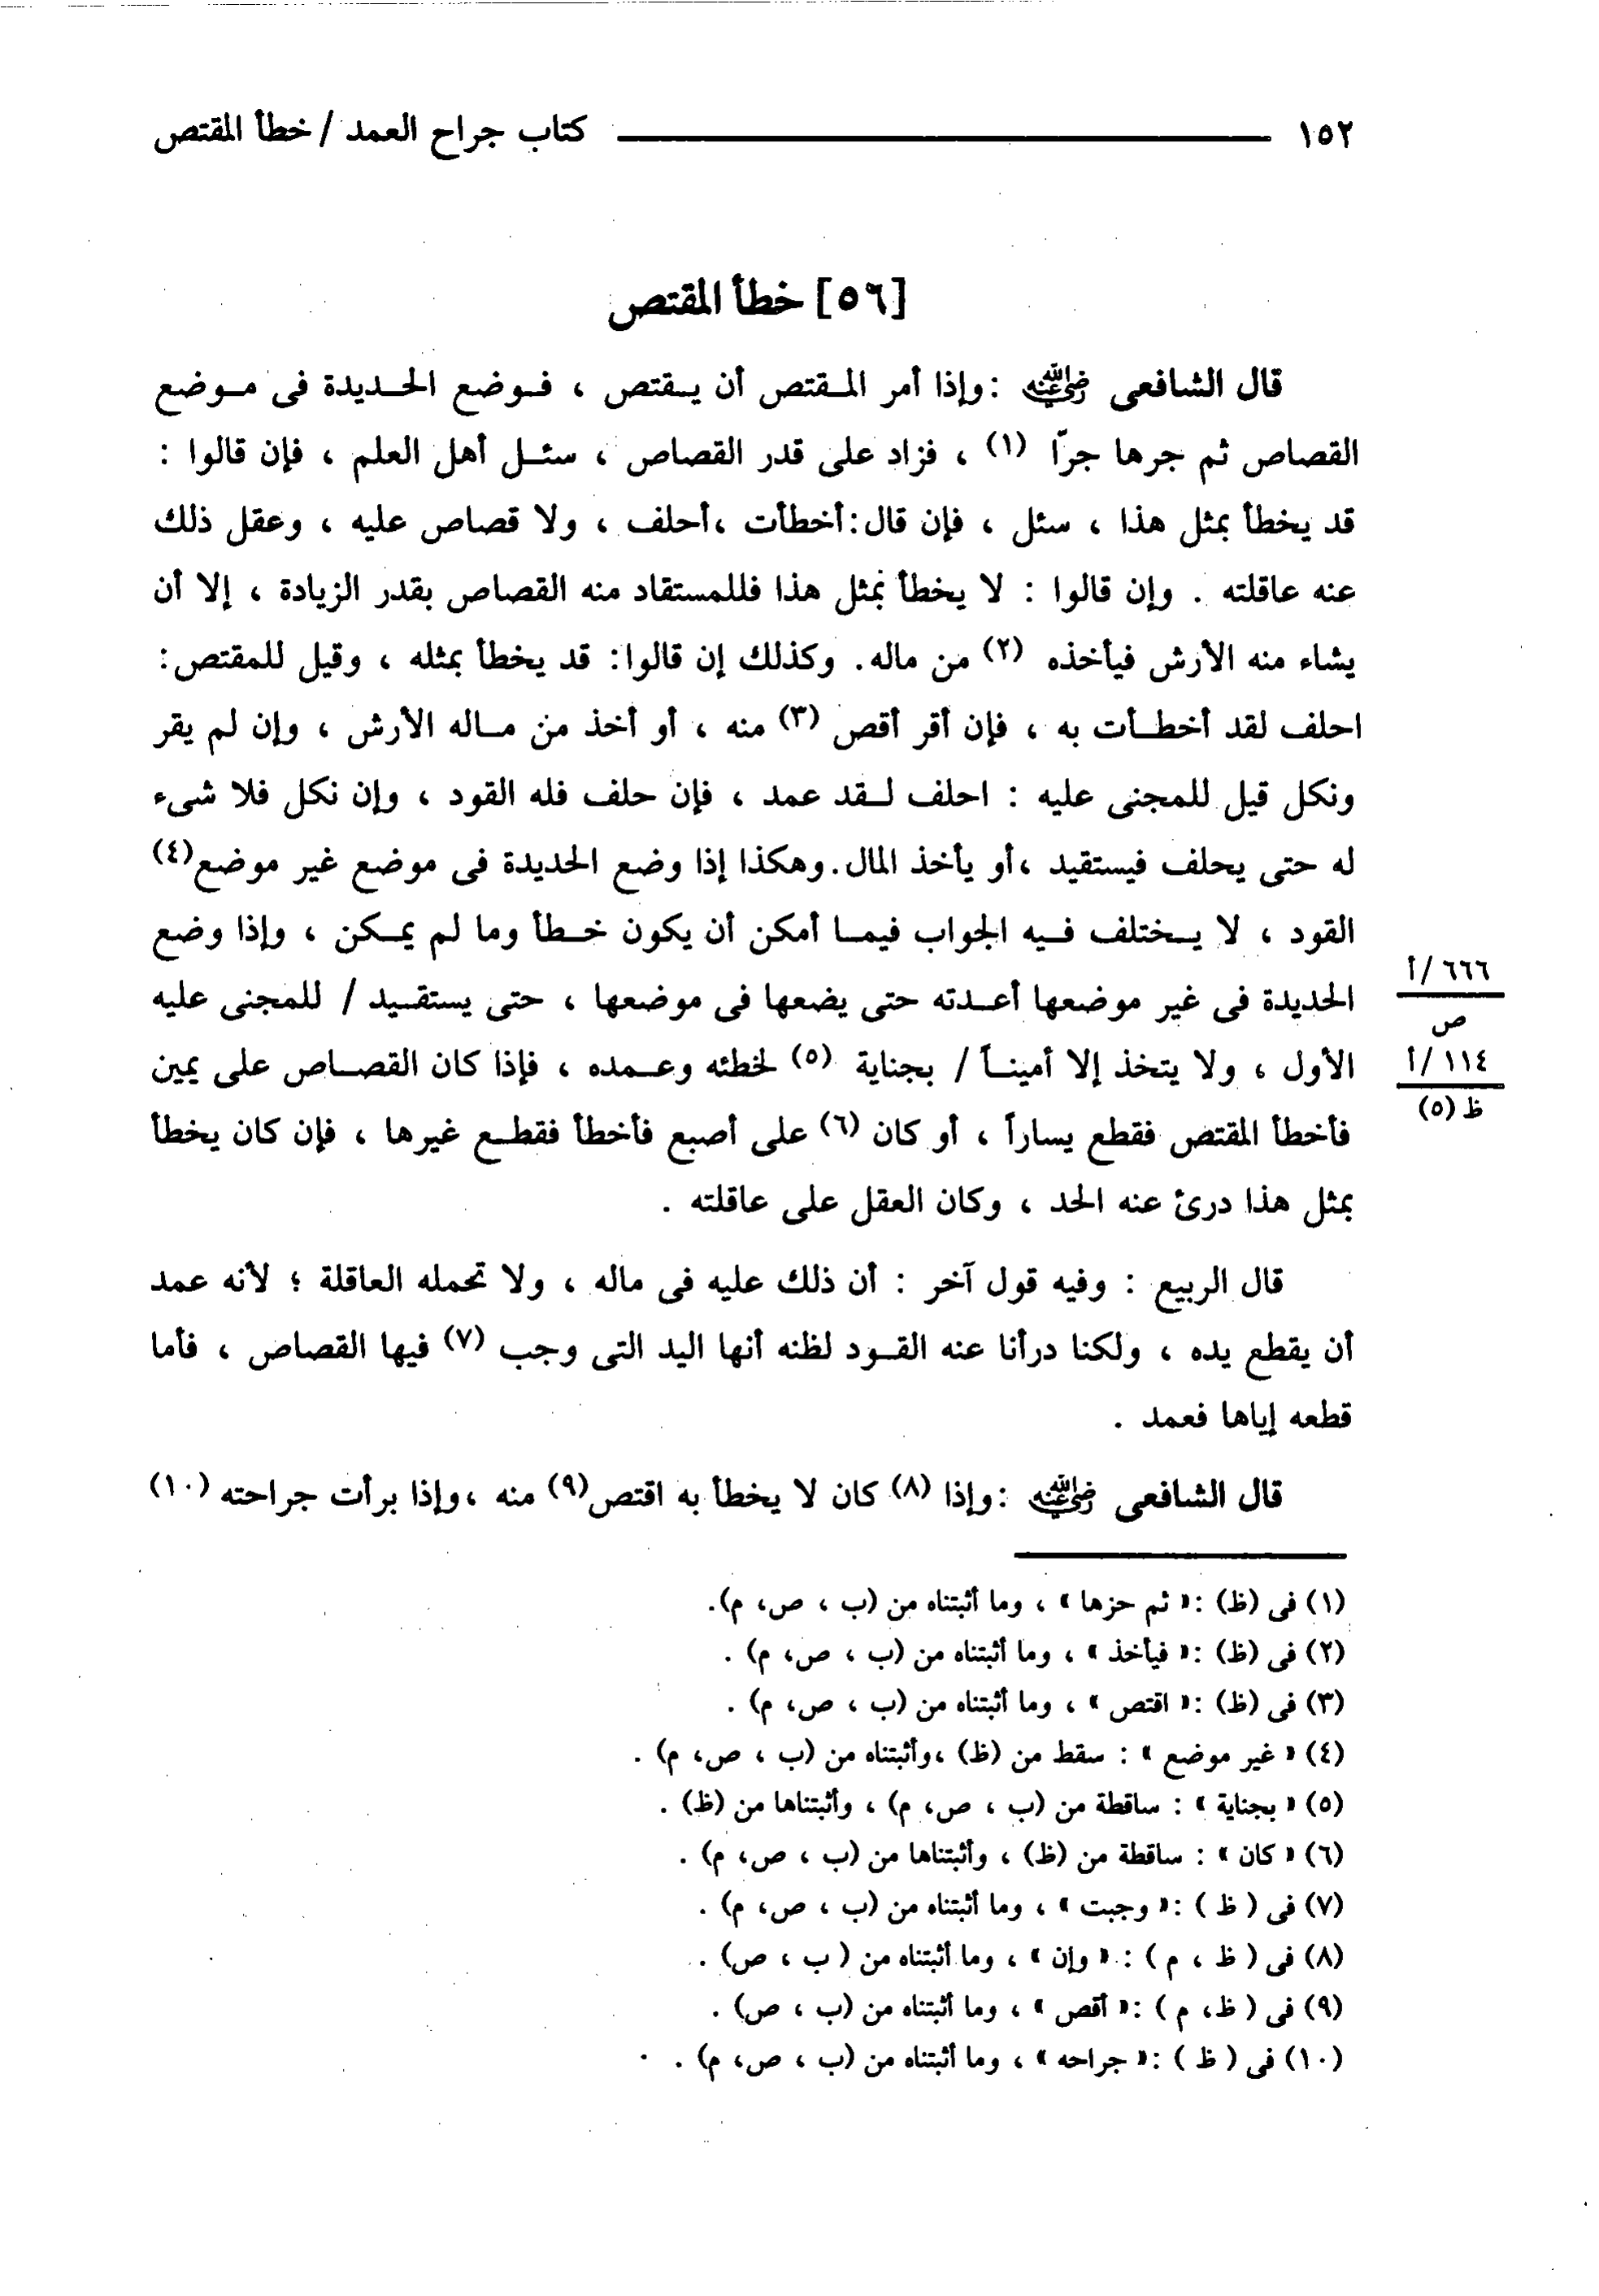 ١٥٢ كتاب جراح العمد / خطأ المقتص
[٥٦] خطأ المقتص
قال الشافعى رضي الله عنه : وإذا أمر المقتص أن يقتص ، فوضع الحديدة فى موضع
القصاص ثم جرها جرّا (١) ، فزاد على قدر القصاص ، سئل أهل العلم ، فإن قالوا :
قد يخطأ بمثل هذا ، سئل ، فإن قال : أخطأت ، أحلف ، ولا قصاص عليه ، وعقل ذلك
عنه عاقلته . وإن قالوا : لا يخطأ بمثل هذا فللمستقاد منه القصاص بقدر الزيادة ، إلا أن
يشاء منه الأرش فيأخذه (٢) من ماله . وكذلك إن قالوا : قد يخطأ بمثله ، وقيل للمقتص :
احلف لقد أخطأت به ، فإن أقر أقص (٣) منه ، أو أخذ من ماله الأرش ، وإن لم يقر
ونكل قيل للمجنى عليه : احلف لقد عمد ، فإن حلف فله القود ، وإن نكل فلا شىء
له حتى يحلف فيستقيد ، أو يأخذ المال . وهكذا إذا وضع الحديدة فى موضع غير موضع (٤)
القود ، لا يختلف فيه الجواب فيما أمكن أن يكون خطأ وما لم يمكن ، وإذا وضع
الحديدة فى غير موضعها أعدته حتى يضعها فى موضعها ، حتى يستقيد / للمجنى عليه
الأول ، ولا يتخذ إلا أميناً / بجناية (٥) لخطئه وعمده ، فإذا كان القصاص على يمين
فأخطأ المقتص فقطع يساراً ، أو كان (٦) على أصبع فأخطأ فقطع غيرها ، فإن كان يخطأ
بمثل هذا درئ عنه الحد ، وكان العقل على عاقلته .
٦٦٦ / أ
ص
١١٤ / أ
ظ (٥)
قال الربيع : وفيه قول آخر : أن ذلك عليه فى ماله ، ولا تحمله العاقلة ؛ لأنه عمد
أن يقطع يده ، ولكنا درأنا عنه القود لظنه أنها اليد التى وجب (٧) فيها القصاص ، فأما
قطعه إياها فعمد .
قال الشافعى رضي الله عنه : وإذا (٨) كان لا يخطأ به اقتص (٩) منه ، وإذا برأت جراحته (١٠)
(١) فى (ظ) : « ثم حزها » ، وما أثبتناه من (ب ، ص، م).
(٢) فى (ظ) : « فيأخذ » ، وما أثبتناه من (ب ، ص، م) .
(٣) فى (ظ) : « اقتص » ، وما أثبتناه من (ب ، ص، م) .
(٤) « غير موضع » : سقط من (ظ) ، وأثبتناه من (ب ، ص، م) .
(٥) « بجناية » : ساقطة من (ب ، ص، م) ، وأثبتناها من (ظ) .
(٦) « كان » : ساقطة من (ظ) ، وأثبتناها من (ب ، ص، م) .
(٧) فى ( ظ ) : « وجبت » ، وما أثبتناه من (ب ، ص، م) .
(٨) فى ( ظ ، م ) : « وإن » ، وما أثبتناه من ( ب ، ص) .
(٩) فى ( ظ، م ) : « أقص » ، وما أثبتناه من (ب ، ص) .
(١٠) فى ( ظ ) : « جراحه » ، وما أثبتناه من (ب ، ص، م) .